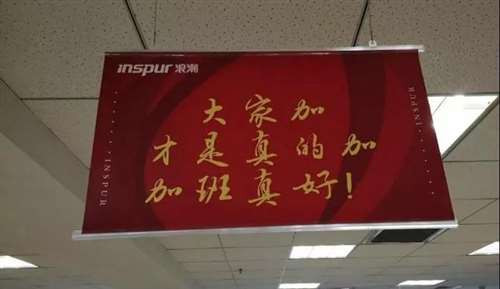 inspur 浪潮
大家加
才是真的加
加班真好!
INSPUR
INSPUR